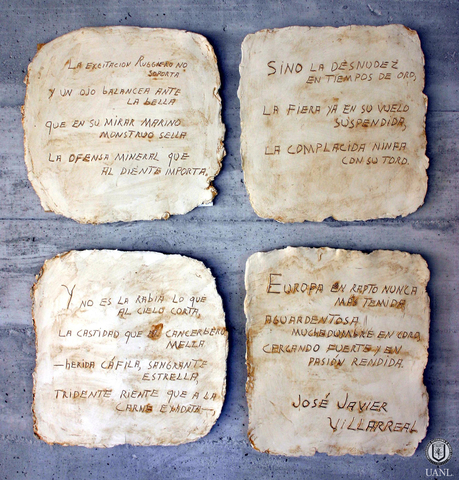 LA EXCITACIÓN RUGGIERO NO
SOPORTA
Y UN OJO BALANCEA ANTE
LA BELLA
QUE EN SU MIRAR MARINO
MONSTRUO SELLA
LA OFENSA MINERAL QUE
AL DIENTE IMPORTA.
Y NO ES LA RABIA LO QUE
AL CIELO CORTA,
LA CASTIDAD QUE EL CANCERBERO
MELLA
—HERIDA CÁFILA, SANGRANTE
ESTRELLA,
TRIDENTE RIENTE QUE A LA
CARNE EXHORTA—,
SINO LA DESNUDEZ
EN TIEMPOS DE ORO,
LA FIERA YA EN SU VUELO
SUSPENDIDA,
LA COMPLACIDA NINFA
CON SU TORO.
EUROPA EN RAPTO NUNCA
MÁS TEMIDA,
AGUARDENTOSA
MUCHEDUMBRE EN CORO,
CERCANDO FUERTE Y EN
PASIÓN RENDIDA.
JOSÉ JAVIER
VILLARREAL
UANL